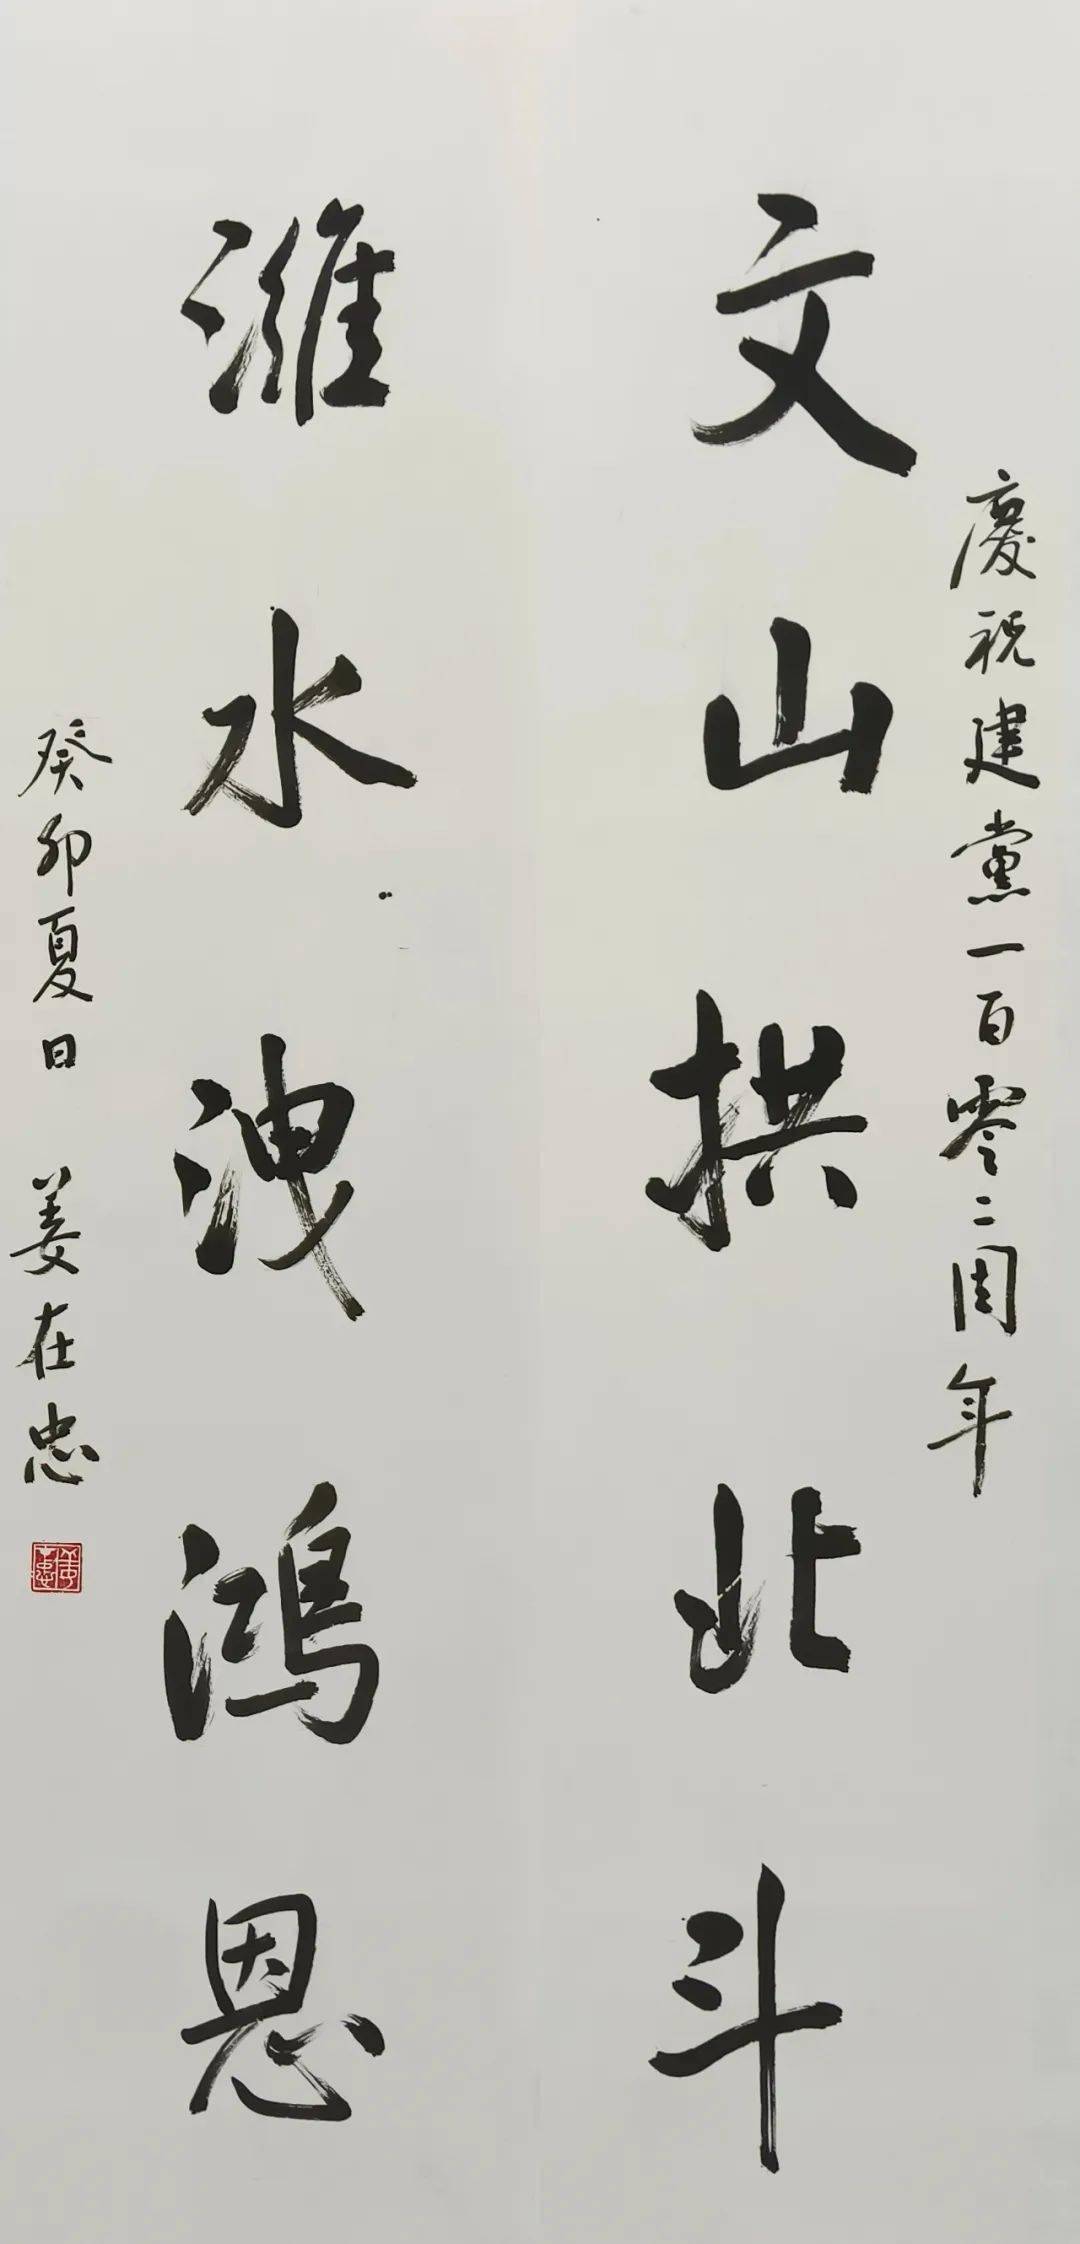 慶祝建黨一百零二周年
文山拱北斗
潍水洩鴻恩
癸卯夏日 姜在忠